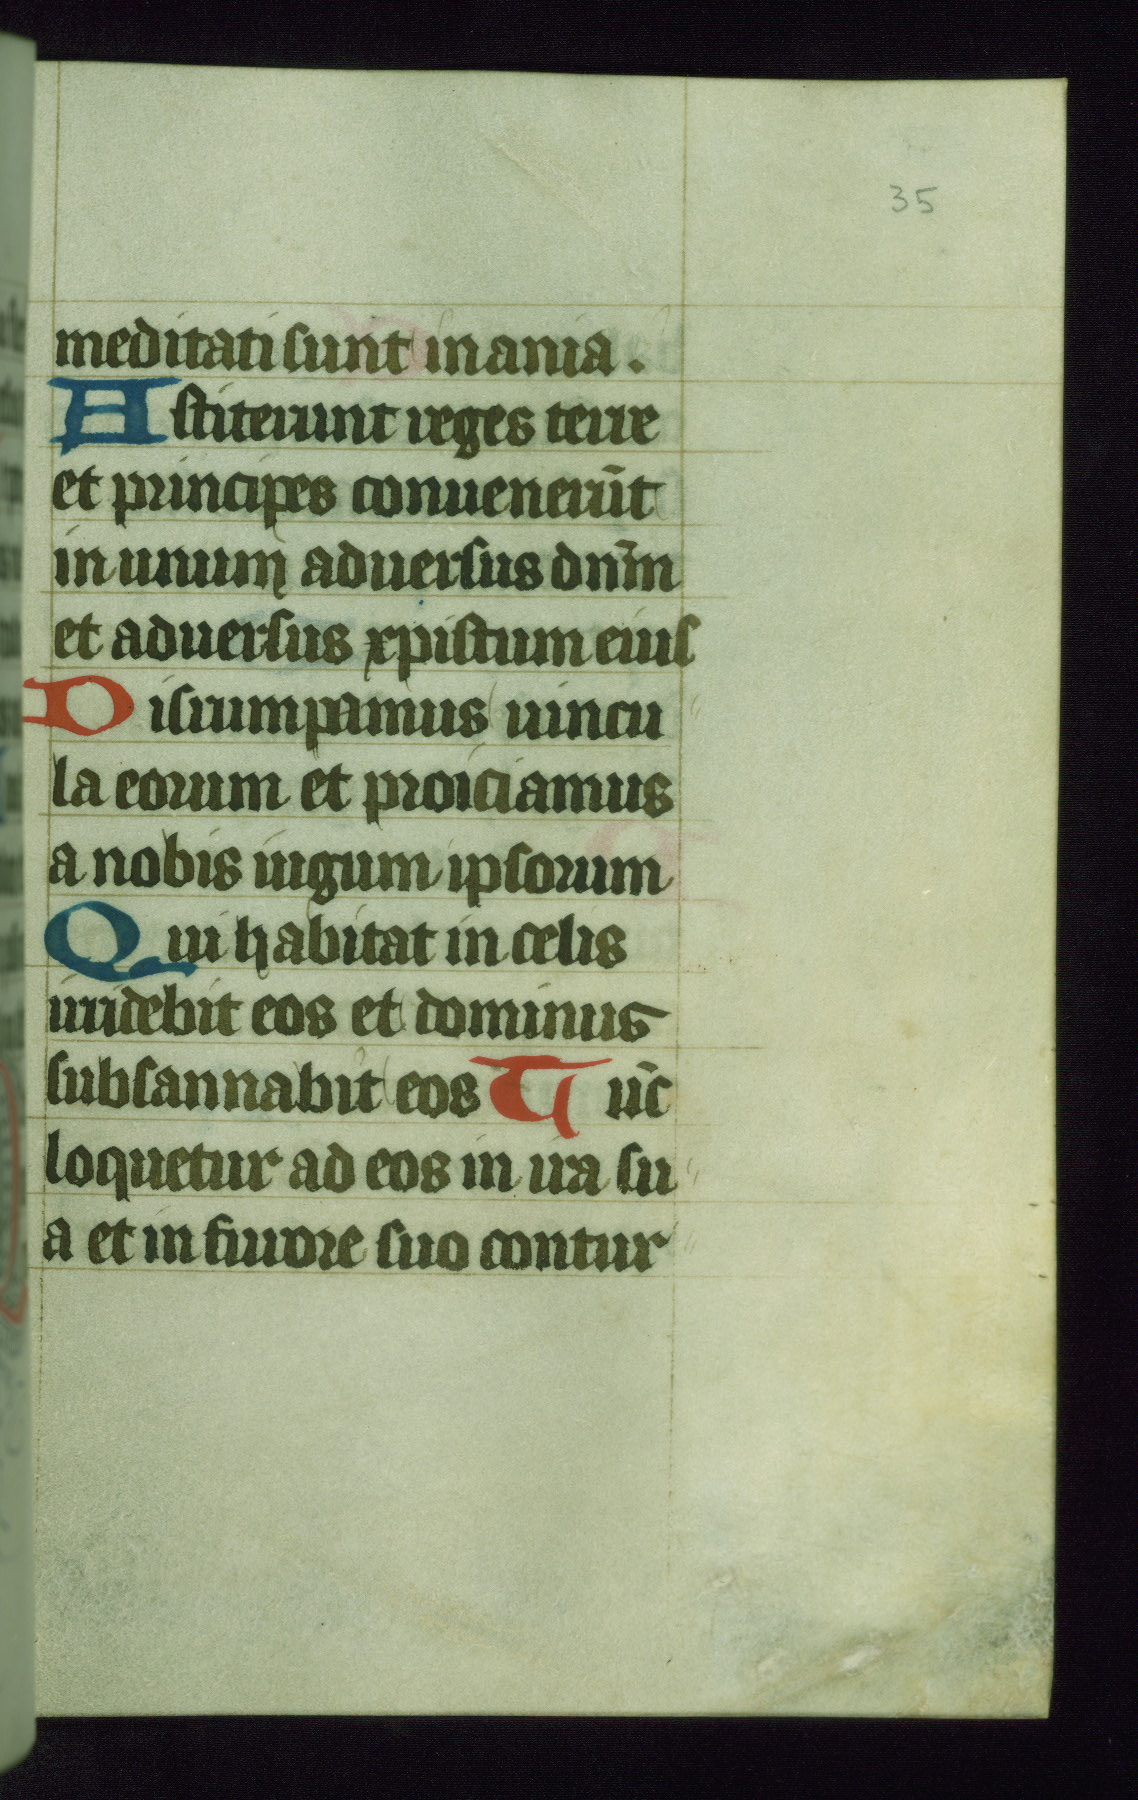 35
meditati sunt inania.
Astiterunt reges terre
et principes conuenerūt
in unum aduersus dnm̄
et aduersus xpistum eius
Disrumpamus uincu
la eorum et proiciamus
a nobis iugum ipsorum
Qui habitat in celis
irridebit eos et dominus
subsannabit eos Tūc
loquetur ad eos in ira su
a et in furore suo contur